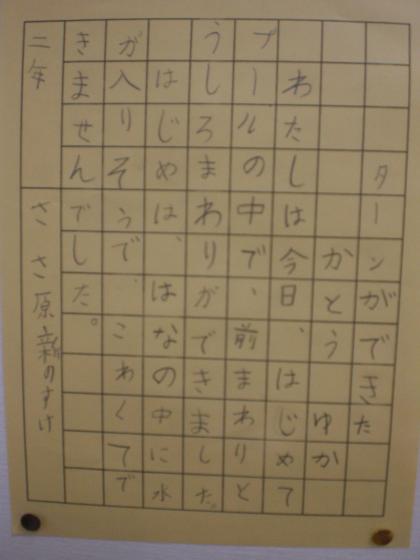 ターンができた
かとう ゆか
わたしは今日、はじめて
プールの中で、前まわりと
うしろまわりができました。
はじめは、はなの中に水
が入りそうで、こわくてで
きませんでした。
二年 ささ原新のすけ